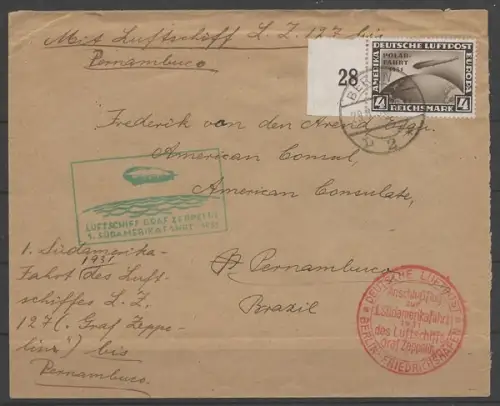 Mit Luftschiff L. Z. 127 bis
Pernambuco
28
DEUTSCHE LUFTPOST
AMERIKA
EUROPA
POLAR-
FAHRT
1931
4 REICHSMARK 4
BERLIN
L 2
Frederik von den Arend Esqu.
American Consul,
American Consulate,
Pernambuco
Brazil
LUFTSCHIFF GRAF ZEPPELIN
1. SÜDAMERIKAFAHRT 1931
1. Südamerika-
1931
Fahrt des Luft-
schiffes L. Z.
127 („Graf Zeppe-
lin") bis
Pernambuco.
DEUTSCHE LUFTPOST
Anschlußflug
zur
1. Südamerikafahrt
1931
des Luftschiffs
Graf Zeppelin
BERLIN-FRIEDRICHSHAFEN